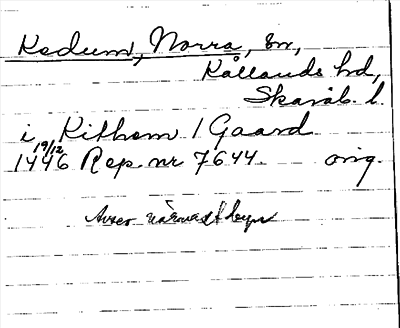 Kedum, Norra, sn,
Kållands hd,
Skarab. l.
i Kithem I Gaard
19/12
1446 Rep nr 7644. orig.
Avser närmast byn